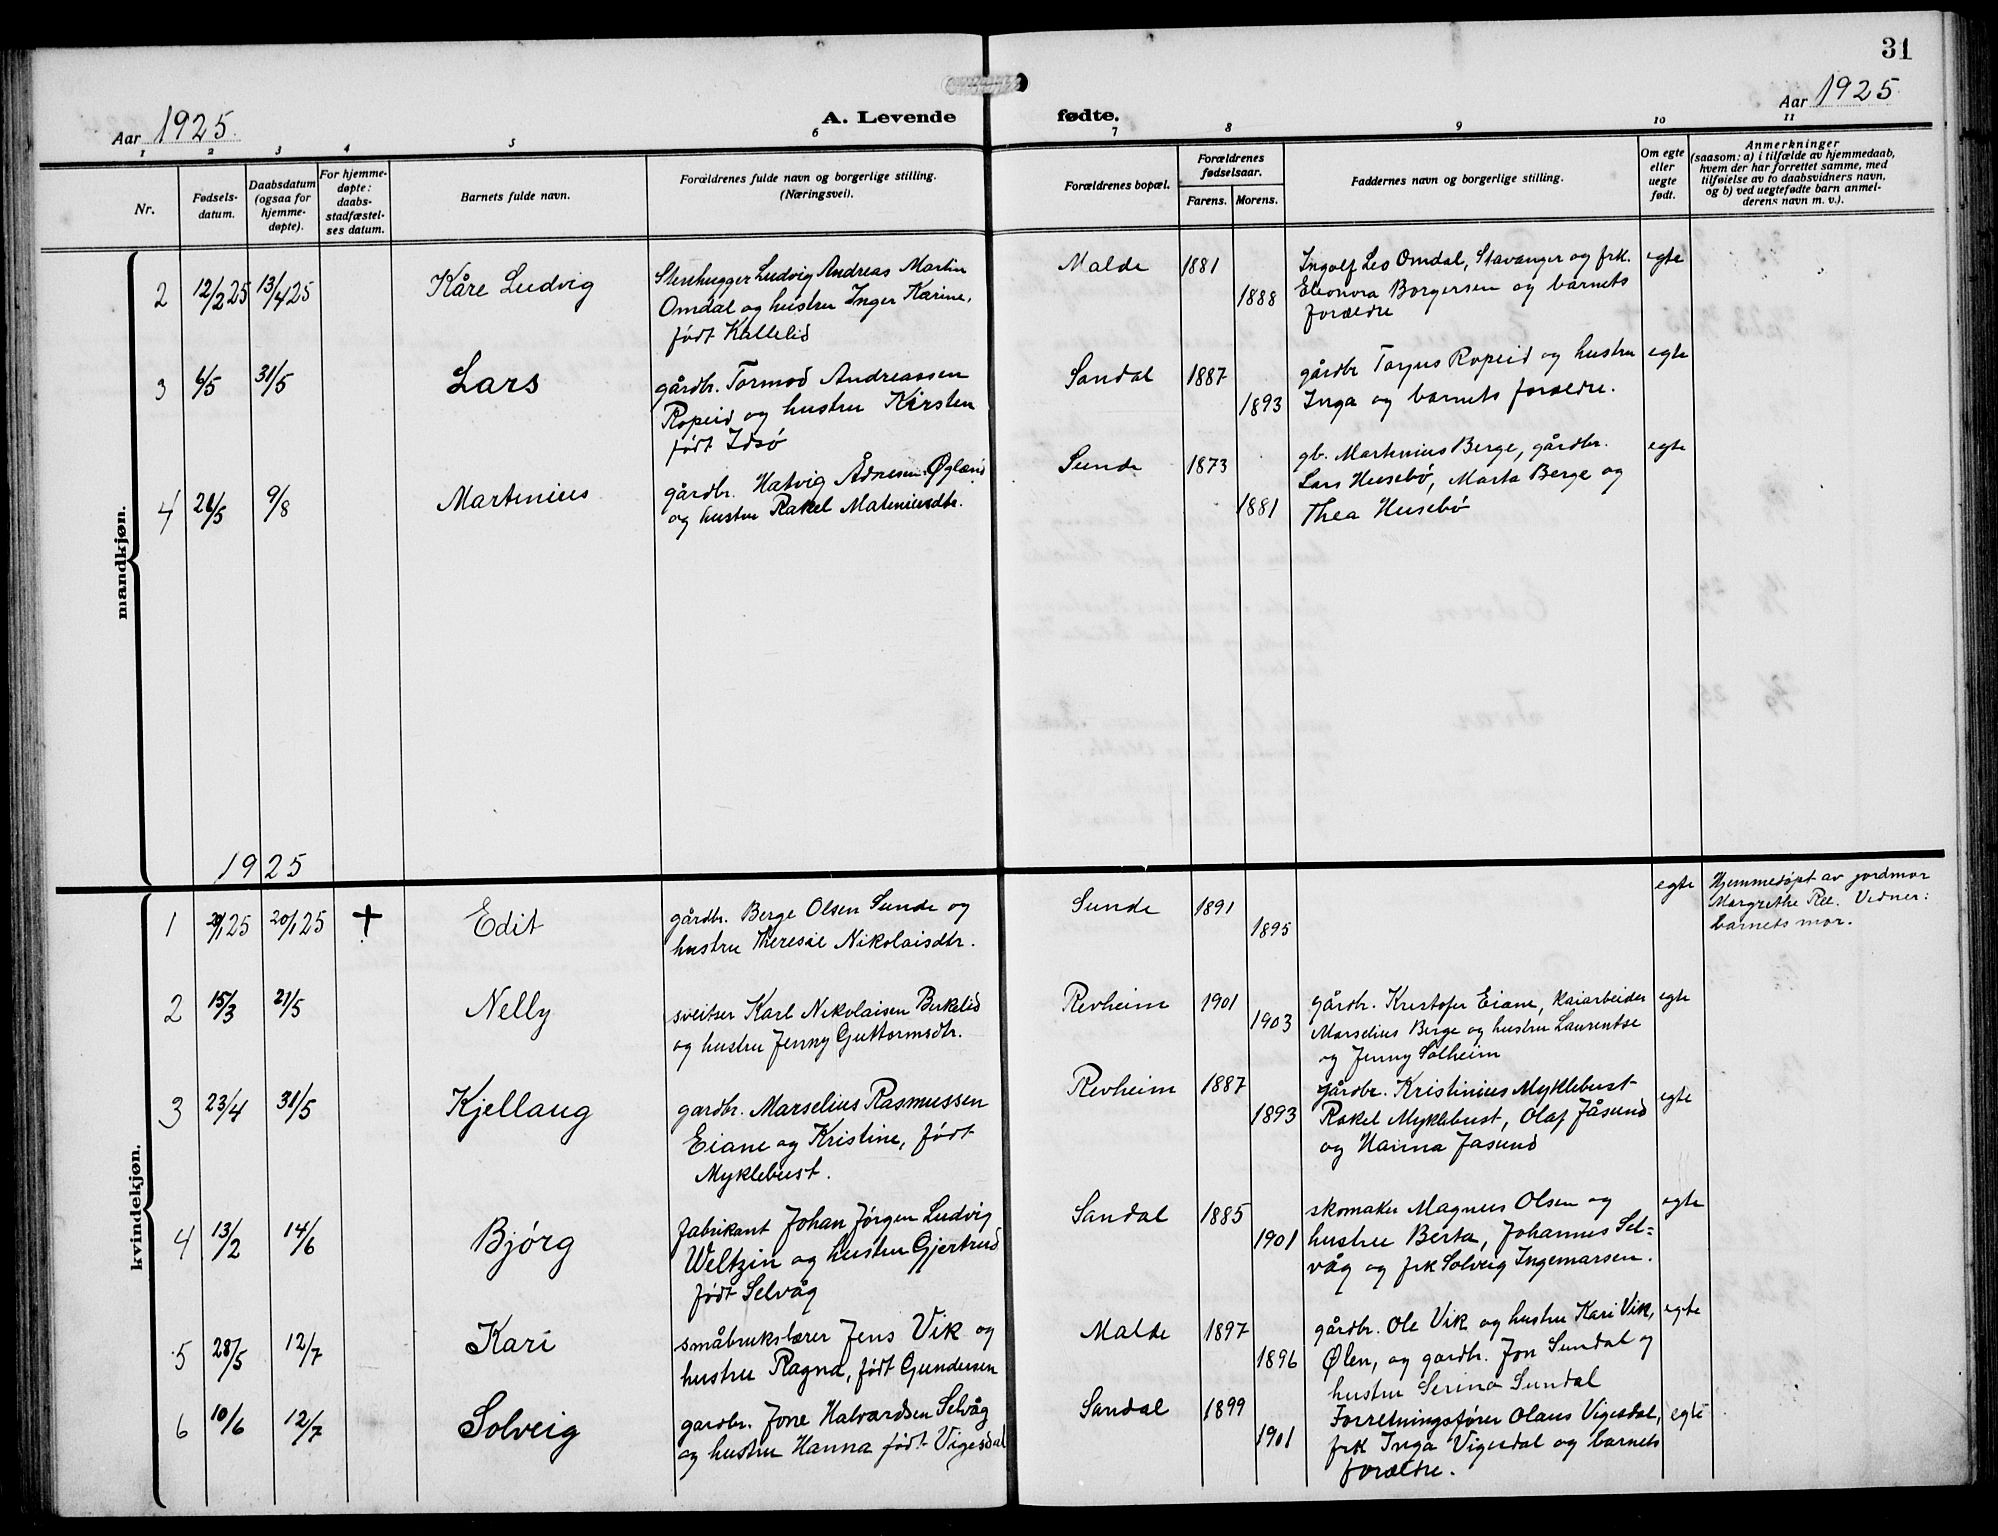 31
Aar 1925.
A. Levende
fødte.
Aar 1925
1 2 3 4 5 6 7 8 9 10 11
Nr.
Fødsels-
datum.
Daabsdatum
(ogsaa for
hjemme-
døpte).
For hjemme-
døpte:
daabs-
stadfæstel-
ses datum.
Barnets fulde navn.
Forældrenes fulde navn og borgerlige stilling.
(Næringsvei).
Forældrenes bopæl.
Forældrenes
fødselsaar.
Farens. Morens.
Faddernes navn og borgerlige stilling.
Om egte
eller
uegte
født.
Anmerkninger
(saasom: a) i tilfælde av hjemmedaab,
hvem der har forrettet samme, med
tilføielse av to daabsvidners navn,
og b) ved uegtefødte barn anmel-
derens navn m. v.).
mandkjøn.
2 12/2 25 13/4 25 Kåre Ludvig
Stenhugger Ludvig Andreas Martin
Omdal og hustru Inger Karine,
født Kallelid
Malde 1881 1888
Ingolf Leo Omdal, Stavanger og frk.
Eleonora Borgersen og barnets
forældre
egte
3 6/5 31/5 Lars
gårdbr. Tormod Andreassen
Ropeid og hustru Kirsten
født Idsø
Sandal 1887 1893
gårdbr Torjus Ropeid og hustru
Inga og barnets forældre.
egte
4 28/5 9/8 Martinius
gårdbr. Hatvig Ådnesen Øgland
og hustru Rakel Mateniusdtr.
Sunde 1873 1881
gb. Martinius Berge, gårdbr.
Lars Husebø, Marta Berge og
Thea Husebø
egte
1925
kvindekjøn.
1 20/1 25 20/1 25 + Edit
gårdbr. Berge Olsen Sunde og
hustru Theresie Nikolaisdtr.
Sunde 1891 1895
egte
Hjemmedøpt av jordmor
Margrethe Ree. Vidner:
barnets mor.
2 15/3 21/5 Nelly
sveitser Karl Nikolaisen Birkelid
og hustru Jenny Guttormsdtr.
Revheim 1901 1903
gårdbr. Kristofer Eiane, kaiarbeider
Marselius Berge og hustru Laurentse
og Jenny Solheim
egte
3 23/4 31/5 Kjellaug
gardbr. Marselius Rasmussen
Eiane og Kristine, født
Myklebust.
Revheim 1887 1893
gårdbr. Kristinius Myklebust
Rakel Myklebust, Olaf Jåsund
og Hanna Jasund
egte
4 13/2 14/6 Bjørg
fabrikant Johan Jørgen Ludvig
Weltzin og hustru Gjertrud
født Selvåg
Sandal 1885 1901
skomaker Magnus Olsen og
hustru Berta, Johannes Sel=
våg og frk Solveig Ingemarsen.
egte
5 28/5 12/7 Kari
småbrukslærer Jens Vik og
hustru Ragna, født Gundersen
Malde 1897 1896
gårdbr. Ole Vik og hustru Kari Vik,
Ølen, og gardbr. Jon Sundal og
hustru Serina Sundal
egte
6 10/6 12/7 Solveig
gardbr. Jone Halvardsen Selvåg
og hustru Hanna født Vigesdal
Sandal 1899 1901
Forretningsfører Olaus Vigesdal,
frk Inga Vigesdal og barnets
forældre.
egte